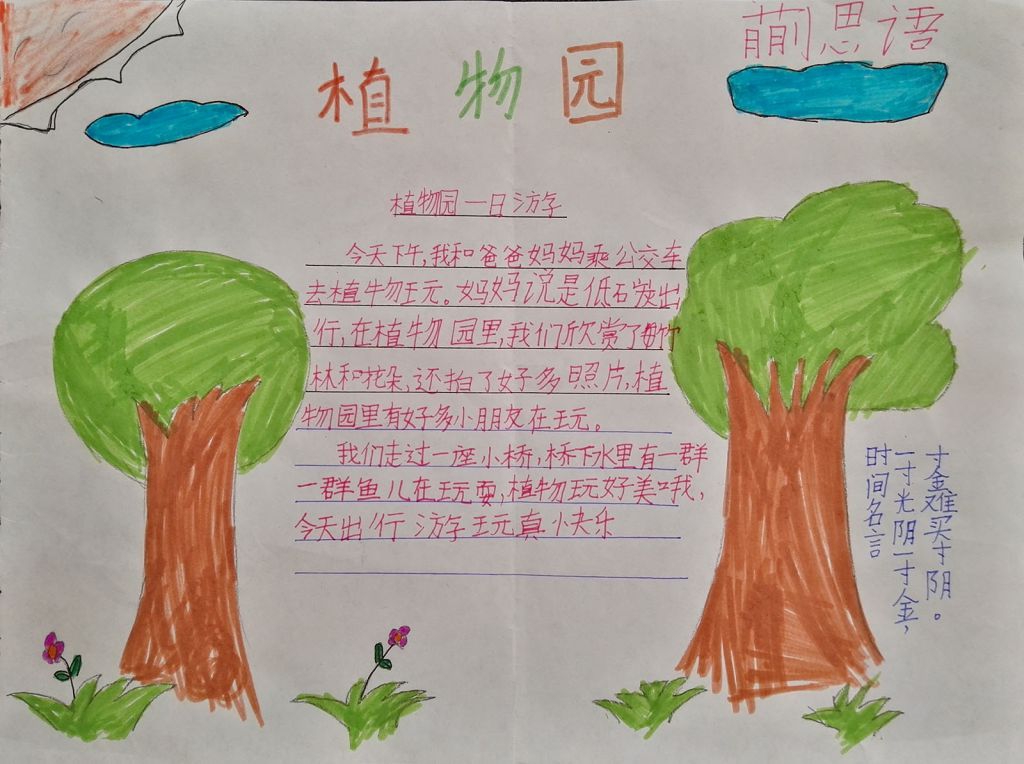 植物园
蒯思语
植物园一日游学
今天下午,我和爸爸妈妈乘公交车
去植物玩。妈妈说是低石炭出
行,在植物园里,我们欣赏了
林和花朵,还拍了好多照片,植
物园里有好多小朋友在玩。
我们走过一座小桥,桥下水里有一群
一群鱼儿在玩耍,植物玩好美哦,
今天出行游学玩真快乐
时间名言
一寸光阴一寸金,
寸金难买寸阴。